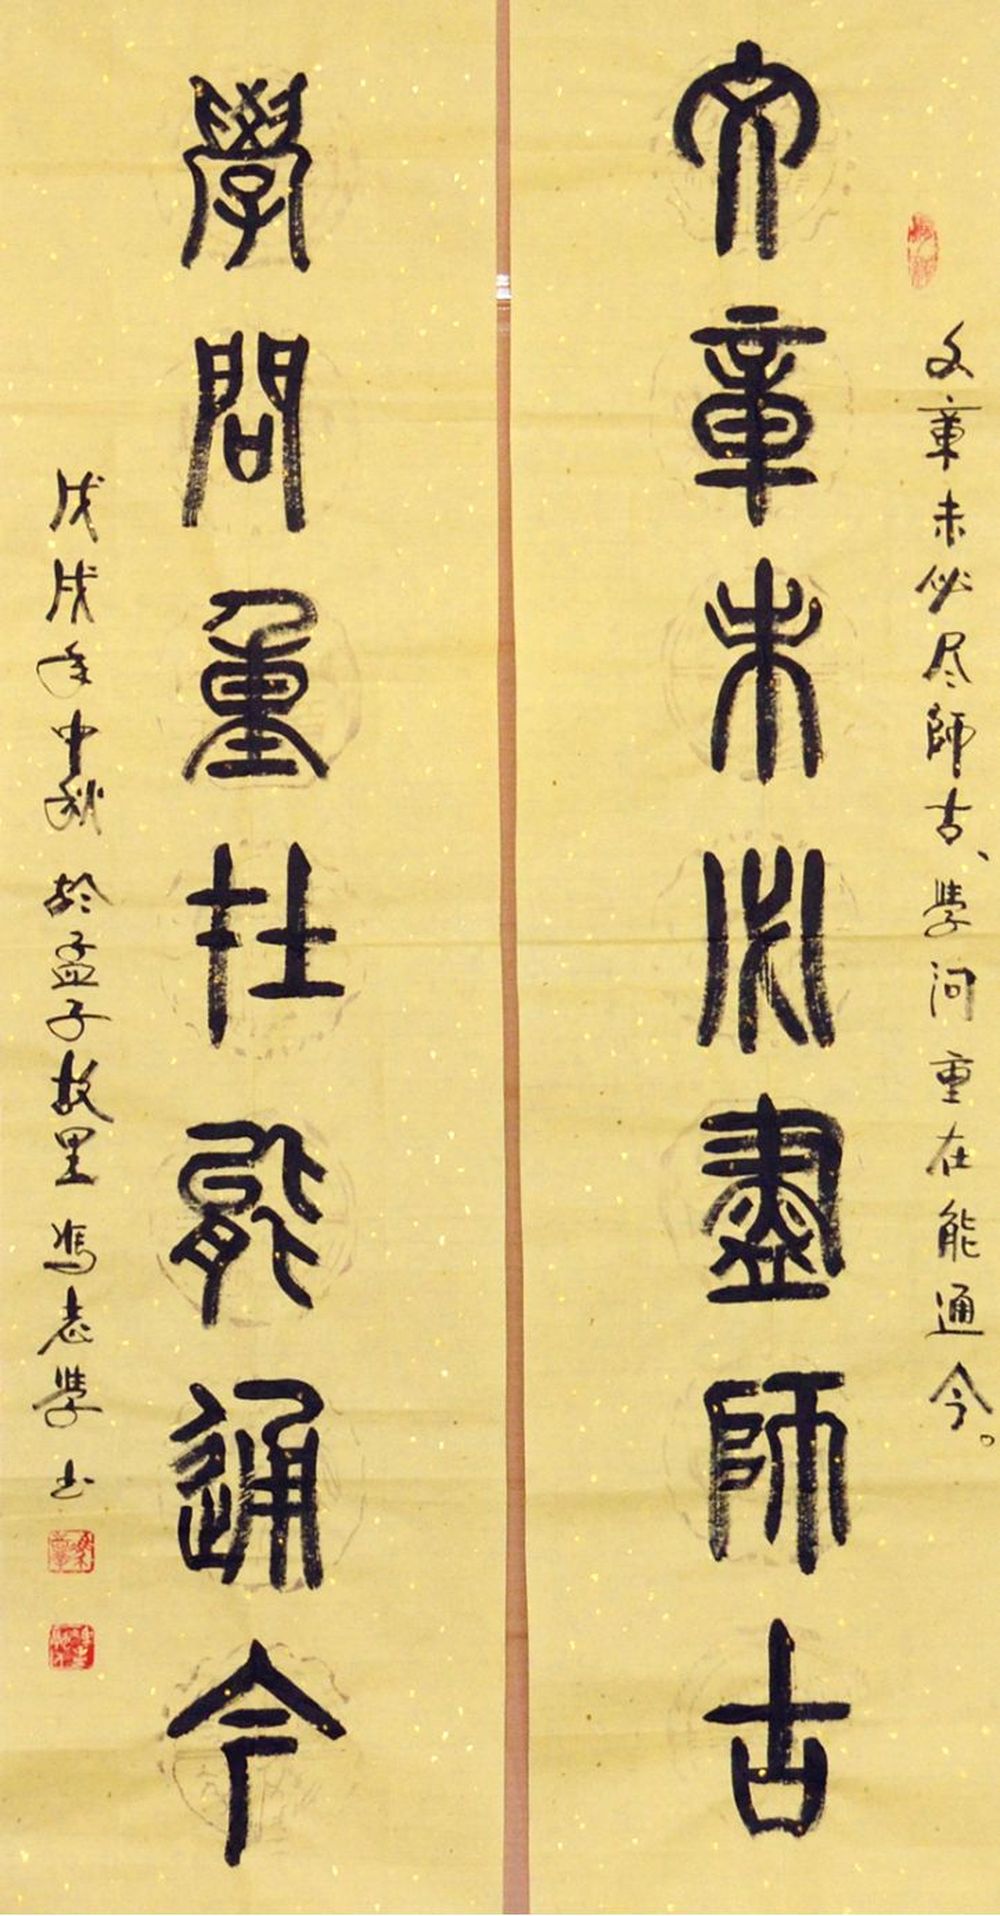 文章未必尽師古、學问重在能通今。
文章未必盡師古
學問重在能通今
戊戌年中秋於孟子故里馮志學书